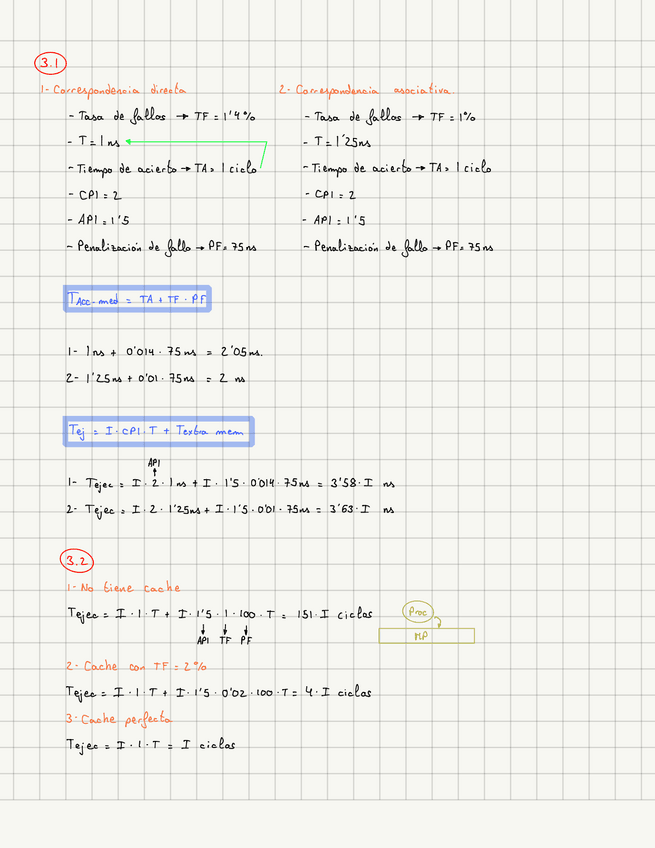 3.1
1- Correspondencia directa
- Tasa de fallos → TF = 1'4%
- T = 1 ns
- Tiempo de acierto → TA = 1 ciclo
- CPI = 2
- API = 1'5
- Penalización de fallo → PF = 75 ns
2- Correspondencia asociativa.
- Tasa de fallos → TF = 1%
- T = 1'25ns
- Tiempo de acierto → TA = 1 ciclo
- CPI = 2
- API = 1'5
- Penalización de fallo → PF = 75 ns
TAcc-med = TA + TF · PF
1- 1ns + 0'014 · 75 ns = 2'05 ns.
2- 1'25ns + 0'01 · 75ns = 2 ns
Tej = I · CPI · T + Textra mem
API
↑
1- Tejec = I · 2 · 1ns + I · 1'5 · 0'014 · 75ns = 3'58 · I ns
2- Tejec = I · 2 · 1'25ns + I · 1'5 · 0'01 · 75ns = 3'63 · I ns
3.2
1- No tiene cache
Tejec = I · 1 · T + I · 1'5 · 1 · 100 · T = 151 · I ciclos
↓ ↓ ↓
API TF PF
Proc
MP
2- Cache con TF = 2%
Tejec = I · 1 · T + I · 1'5 · 0'02 · 100 · T = 4 · I ciclos
3- Cache perfecta
Tejec = I · 1 · T = I ciclos